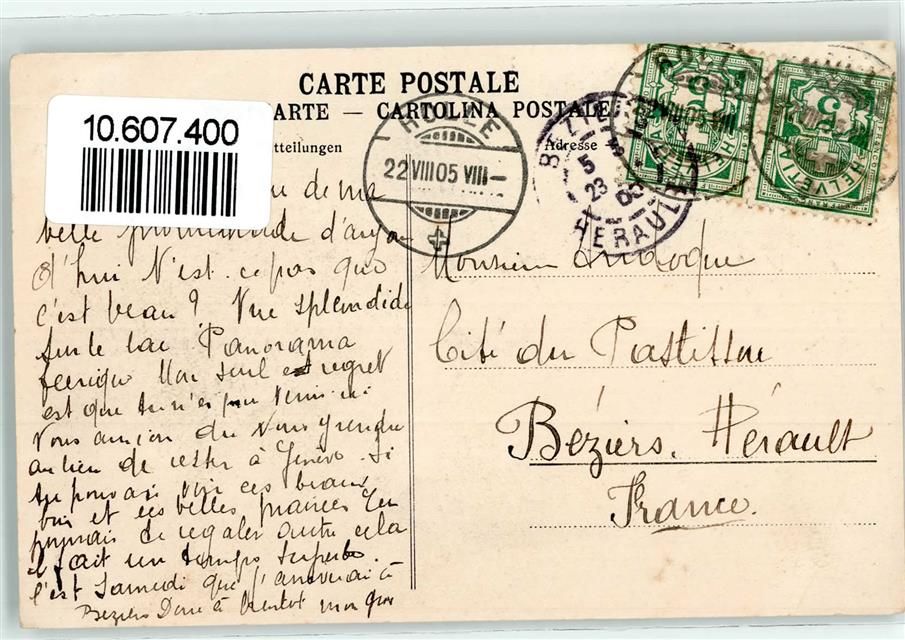 CARTE POSTALE
ARTE — CARTOLINA POSTALE
10.607.400
tteilungen
Adresse
22 VIII 05 VIII –
BEZIERS
HERAULT
5
23
05
HELVETIA
5
HELVETIA
5
de ma
belle promenade d'aujou
d'hui N'est-ce pas que
c'est beau? Vue splendide
sur le lac Panorama
feerique Mon seul regret
est que tu n'es pu venir ici
Nous aurions du nous y rendre
au lieu de rester à Genève. Si
tu pouvais voir ces beaux
bois et ces belles prairies tu
pourrais te regaler outre cela
il fait un temps superbe.
c'est Samedi que j'arriverai à
Beziers Donc à bientot mon
Monsieur
Cité du
Béziers. Hérault
France.